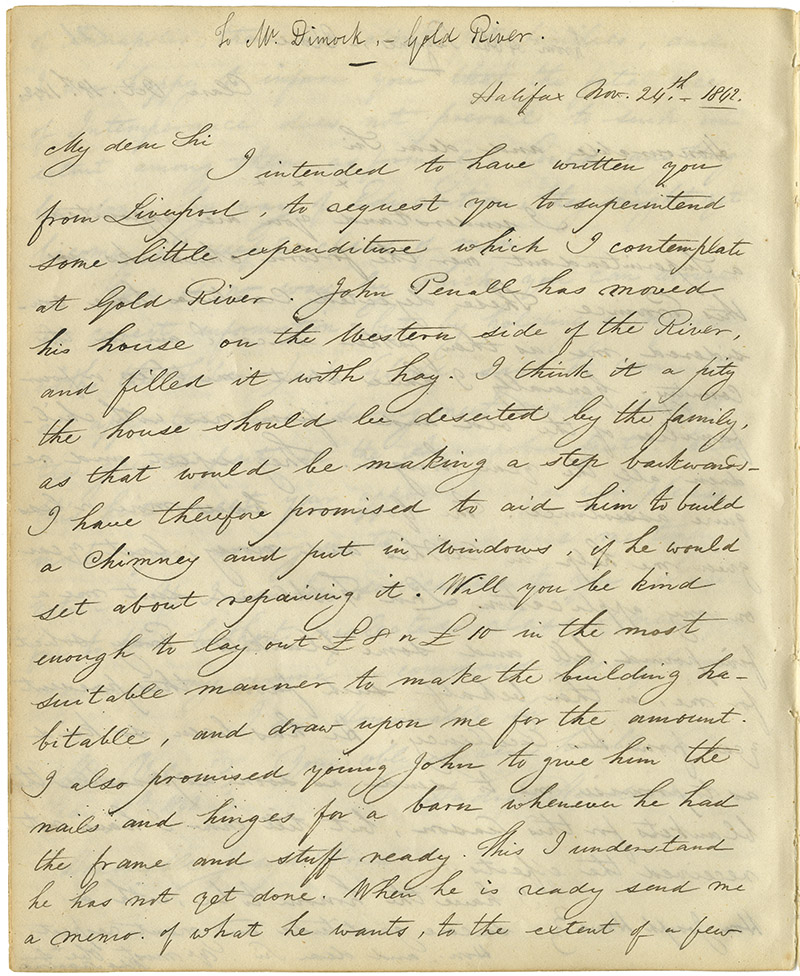 To Mr. Dimock, - Gold River.
Halifax Nov. 24th. - 1842.
My dear Sir
I intended to have written you
from Liverpool, to request you to superintend
some little expenditure which I contemplate
at Gold River. John Penall has moved
his house on the Western side of the River,
and filled it with hay. I think it a pity
the house should be deserted by the family,
as that would be making a step backwards -
I have therefore promised to aid him to build
a Chimney and put in windows, if he would
set about repairing it. Will you be kind
enough to lay out £8 or £10 in the most
suitable manner to make the building ha-
bitable, and draw upon me for the amount.
I also promised young John to give him the
nails and hinges for a barn whenever he had
the frame and stuff ready. This I understand
he has not yet done. When he is ready send me
a memo. of what he wants, to the extent of a few